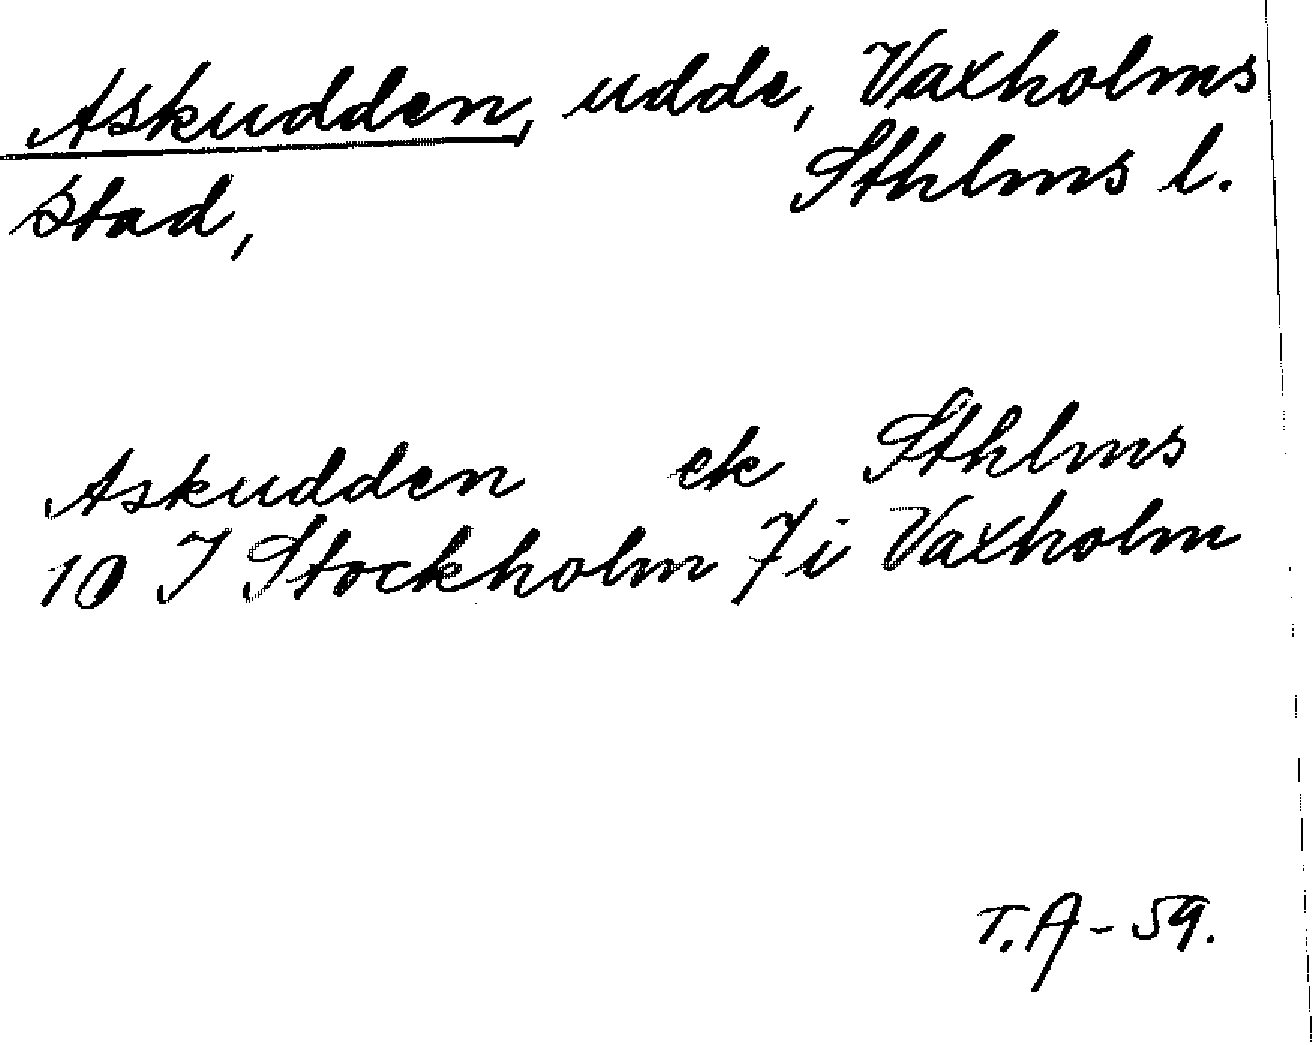 Askudden, udde, Vaxholms
stad, Sthlms l.
Askudden ek Sthlms
10 I Stockholm 7 i Vaxholm
T.A - 59.